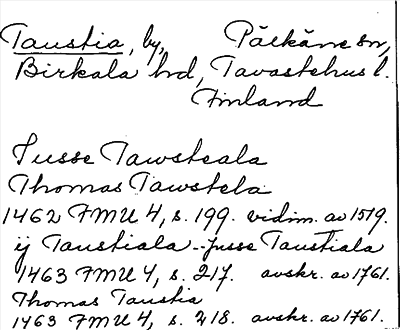 Taustia, by, Pälkäne sn,
Birkala hd, Tavastehus l.
Finland
Jusse Tawsteala
Thomas Tawstela
1462 FMU 4, s. 199. vidim. av 1519.
ij Taustiala - Jusse Taustiala
1463 FMU 4, s. 217. avskr. av 1761.
Thomas Taustia
1463 FMU 4, s. 218. avskr. av 1761.